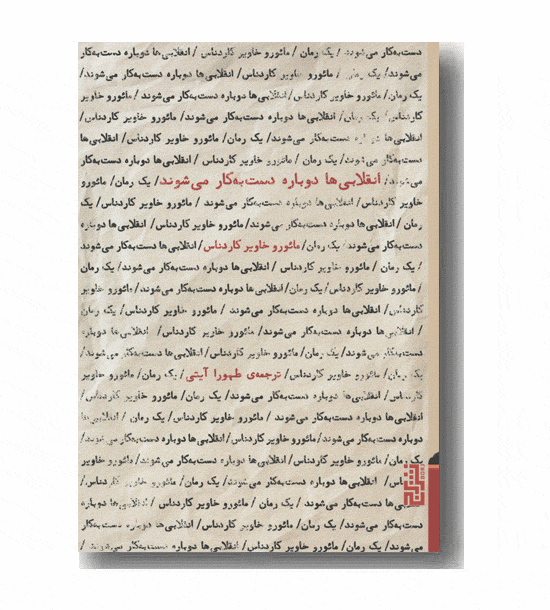 دست‌به‌کار می‌شوند / یک رمان / مائورو خاویر کاردناس / انقلابی‌ها دوباره دست‌به‌کار
می‌شوند/ یک رمان / مائورو خاویر کاردناس/ انقلابی‌ها دوباره دست‌به‌کار می‌شوند/
یک رمان/ مائورو خاویر کاردناس/ انقلابی‌ها دوباره دست‌به‌کار می‌شوند / مائورو خاویر
کاردناس/ یک رمان/ انقلابی‌ها دوباره دست‌به‌کار می‌شوند/ مائورو خاویر کاردناس/
انقلابی‌ها دوباره دست‌به‌کار می‌شوند/ یک رمان/ مائورو خاویر کاردناس/ انقلابی‌ها
دوباره دست‌به‌کار می‌شوند/ یک رمان / مائورو خاویر کاردناس / انقلابی‌ها دوباره دست‌به‌کار
می‌شوند/ انقلابی‌ها دوباره دست‌به‌کار می‌شوند/ یک رمان/ مائورو
خاویر کاردناس/ انقلابی‌ها دوباره دست‌به‌کار می‌شوند / مائورو خاویر کاردناس/ یک
رمان / انقلابی‌ها دوباره دست‌به‌کار می‌شوند/ مائورو خاویر کاردناس/ انقلابی‌ها دوباره
دست‌به‌کار می‌شوند/ یک رمان/ مائورو خاویر کاردناس/ انقلابی‌ها دست‌به‌کار می‌شوند
/ یک رمان / مائورو خاویر کاردناس / انقلابی‌ها دوباره دست‌به‌کار می‌شوند/ یک رمان
/ مائورو خاویر کاردناس/ یک رمان/ انقلابی‌ها دوباره دست‌به‌کار می‌شوند/ مائورو خاویر
کاردناس/ انقلابی‌ها دوباره دست‌به‌کار می‌شوند / مائورو خاویر کاردناس/ یک رمان
/ انقلابی‌ها دوباره دست‌به‌کار می‌شوند/ مائورو خاویر کاردناس/ انقلابی‌ها دوباره
دست‌به‌کار می‌شوند/ یک رمان/ مائورو خاویر کاردناس/ انقلابی‌ها دست‌به‌کار می‌شوند/
یک رمان/ مائورو خاویر کاردناس/ ترجمه‌ی طهورا آیتی/ یک رمان/ مائورو خاویر
کاردناس/ انقلابی‌ها دوباره دست‌به‌کار می‌شوند/ یک رمان/ مائورو خاویر کاردناس/
انقلابی‌ها دوباره دست‌به‌کار می‌شوند / مائورو خاویر کاردناس/ یک رمان / انقلابی‌ها
دوباره دست‌به‌کار می‌شوند/ مائورو خاویر کاردناس/ انقلابی‌ها دوباره دست‌به‌کار می‌شوند/
یک رمان/ مائورو خاویر کاردناس/ انقلابی‌ها دوباره دست‌به‌کار می‌شوند/ مائورو خاویر
انقلابی‌ها دوباره دست‌به‌کار می‌شوند/ یک رمان/ مائورو خاویر کاردناس/
دوباره دست‌به‌کار می‌شوند / یک رمان / مائورو خاویر کاردناس / انقلابی‌ها دوباره
دست‌به‌کار می‌شوند/ یک رمان/ مائورو خاویر کاردناس/ انقلابی‌ها دوباره دست‌به‌کار
می‌شوند/ یک رمان/ مائورو خاویر کاردناس/ انقلابی‌ها دوباره دست‌به‌کار می‌شوند /